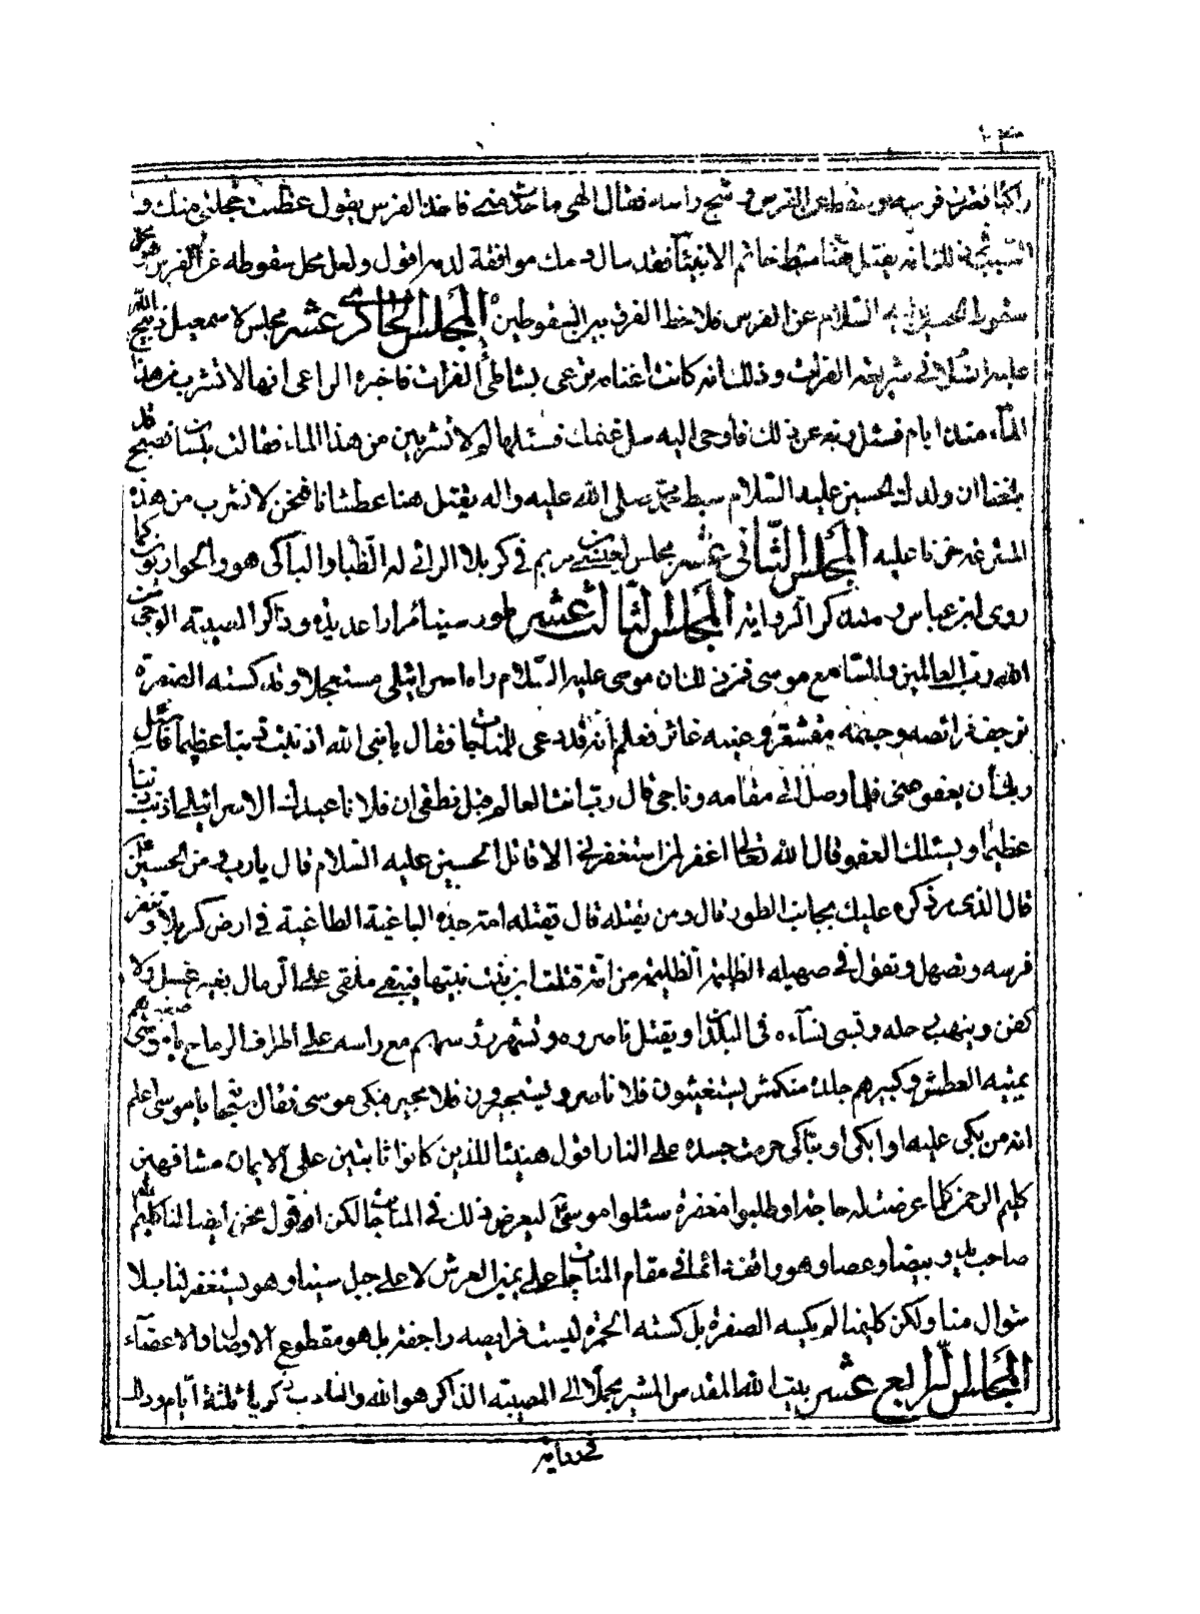 راكبا فعثرت فرسه وسقط عن الفرس وشج راسه فقال الهى ما حدث منى فاخذ الفرس يقول عظمت خجلتى منك و
السبب فى ذلك انه يقتل هنا سبط خاتم الانبياء فقد سال دمك موافقة لدمه اقول ولعل محل سقوطه عن الفرس هو محل
سقوط الحسين عليه السلام عن الفرس فلاحظ الفرق بين السقوطين المجلس الحادى عشر مجلس لاسمعيل ذبيح الله
عليه السلام فى شريعة الفرات وذلك انه كانت اغنامه ترعى بشاطئ الفرات فاخبره الراعى انها لا تشرب من هذا
الماء منذ ايام فسئل ربه عن ذلك فاوحى اليه سل غنمك فسئلها لم لا تشربين من هذا الماء فقالت بلسان فصيح قد
بلغنا ان ولدك الحسين عليه السلام سبط محمد صلى الله عليه واله يقتل هنا عطشانا فنحن لا نشرب من هذه
المشرعة حزنا عليه المجلس الثانى عشر مجلس لعيسى بن مريم فى كربلا الراثى له الظباء والباكى هو والحواريون كما
روى ابن عباس وقد ذكرنا الرواية المجلس الثالث عشر طور سيناء مرارا عديدة وذاكر المصيبة الوحى من
الله رب العالمين والسامع موسى فمن ذلك ان موسى عليه السلام راه اسرائيلى مستعجلا وقد كسته الصفرة
ترجف فرائصه وجسمه مقشعر وعينه غائرة فعلم انه قد دعى للمناجات فقال يا نبى الله اذنبت ذنبا عظيما فاسئل
ربك ان يعفو عنى فلما وصل الى مقامه وناجى قال رب انت العالم قبل نطقى ان فلانا عبدك الاسرائيلى اذنب ذنبا
عظيما ويسئلك العفو قال الله تعالى اغفر لمن استغفرنى الا قاتل الحسين عليه السلام قال يا رب ومن الحسين ع
قال الذى مر ذكره عليك بجانب الطور قال ومن يقتله قال يقتله امة جده الباغية الطاغية فى ارض كربلا وتنفر
فرسه وتصهل وتقول فى صهيلها الظليمة الظليمة من امة قتلت ابن بنت نبيها فيبقى ملقى على الرمال بغير غسل ولا
كفن وينهب رحله وتسبى نساءه فى البلدان ويقتل ناصروه وتشهر رؤسهم مع راسه على اطراف الرماح يا موسى صغيرهم
يميته العطش وكبيرهم جلده منكمش يستغيثون فلا ناصر ويستجيرون فلا مجير فبكى موسى فقال تعالى يا موسى اعلم
انه من بكى عليه او ابكى او تباكى حرمت جسده على النار اقول هنيئا للذين كانوا ثابتين على الايمان مشافهين
كليم الرحمن كلما عرضت له حاجة او طلبوا مغفرة سئلوا موسى ليعرض ذلك فى المناجات لكن اقول نحن ايضا لنا كليم الله
صاحب يد وبيضا وعصا وهو واقف دائما فى مقام المناجات على يمين العرش لا على جبل سينا وهو يستغفر لنا بلا
سؤال منا ولكن كليمنا لم يكسه الصفرة بل كسته الحمرة ليست فرايصه راجفة بل هو مقطوع الاوصال والاعضاء
المجلس الرابع عشر بيت الله المقدس المشير مجملا الى المصيبة الذاكر هو الله والنادب زكريا ثلثة ايام وذلك
فى رواية